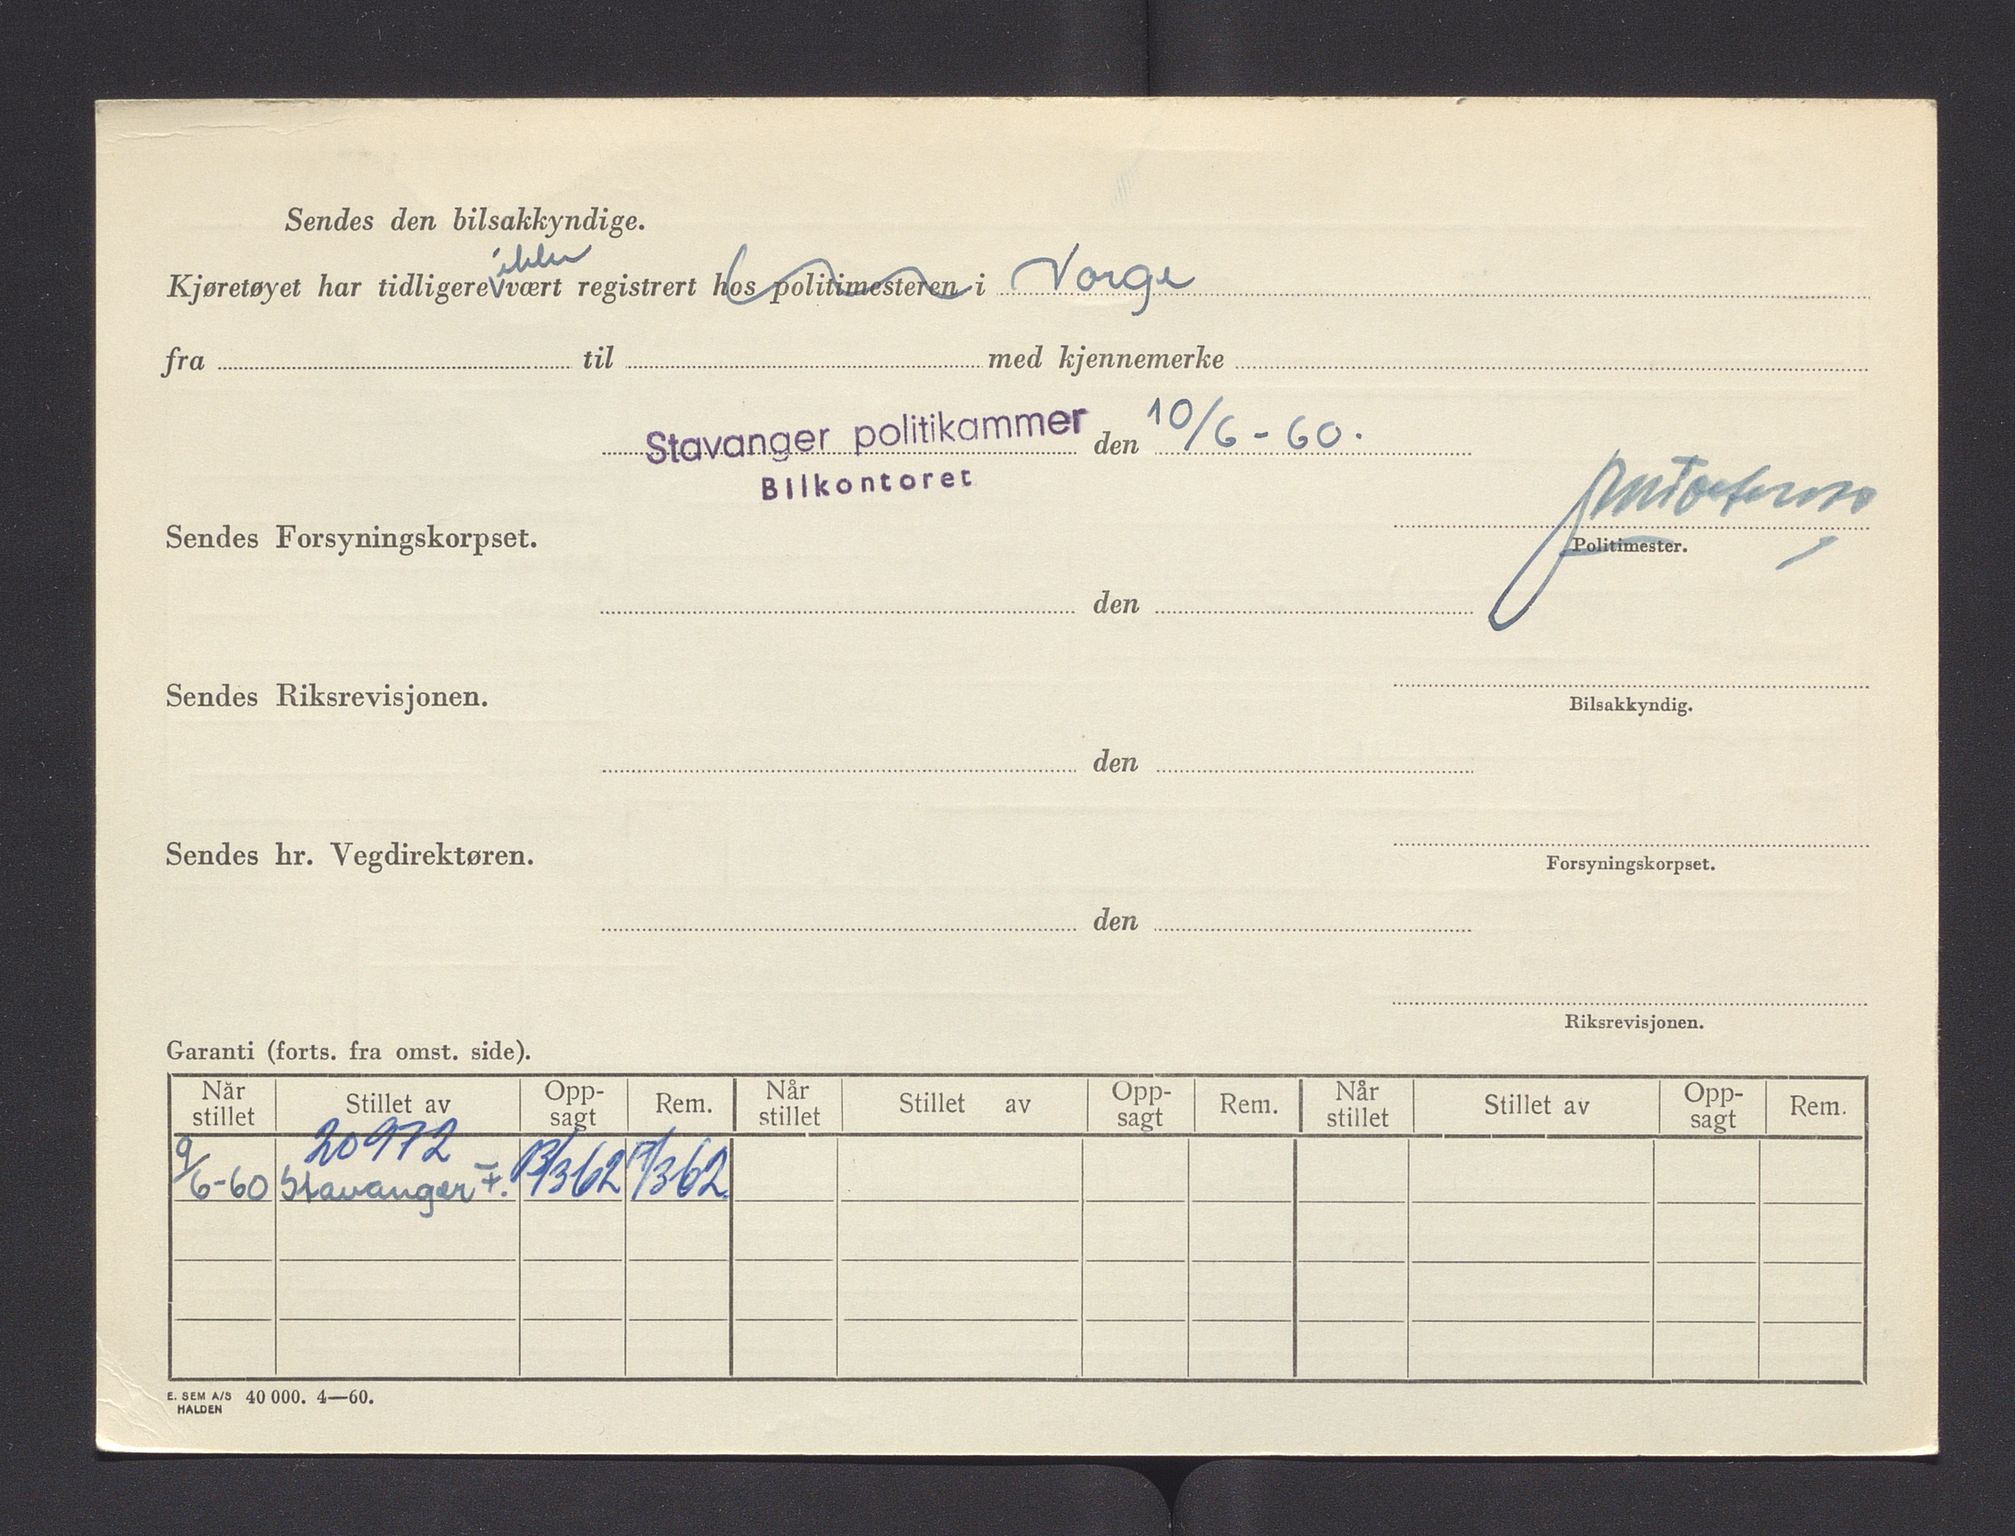 Sendes den bilsakkyndige.
ikke
Kjøretøyet har tidligere vært registrert hos politimesteren i Norge
fra til med kjennemerke
Stavanger politikammer den 10/6-60.
Bilkontoret
Sendes Forsyningskorpset.
Politimester.
den
Sendes Riksrevisjonen.
Bilsakkyndig.
den
Sendes hr. Vegdirektøren.
Forsyningskorpset.
den
Riksrevisjonen.
Garanti (forts. fra omst. side).
Når stillet Stillet av Opp-sagt Rem. Når stillet Stillet av Opp-sagt Rem. Når stillet Stillet av Opp-sagt Rem.
20972
9/6-60 Stavanger F. 13/3 62 /3 62
E. SEM A/S HALDEN 40 000. 4—60.